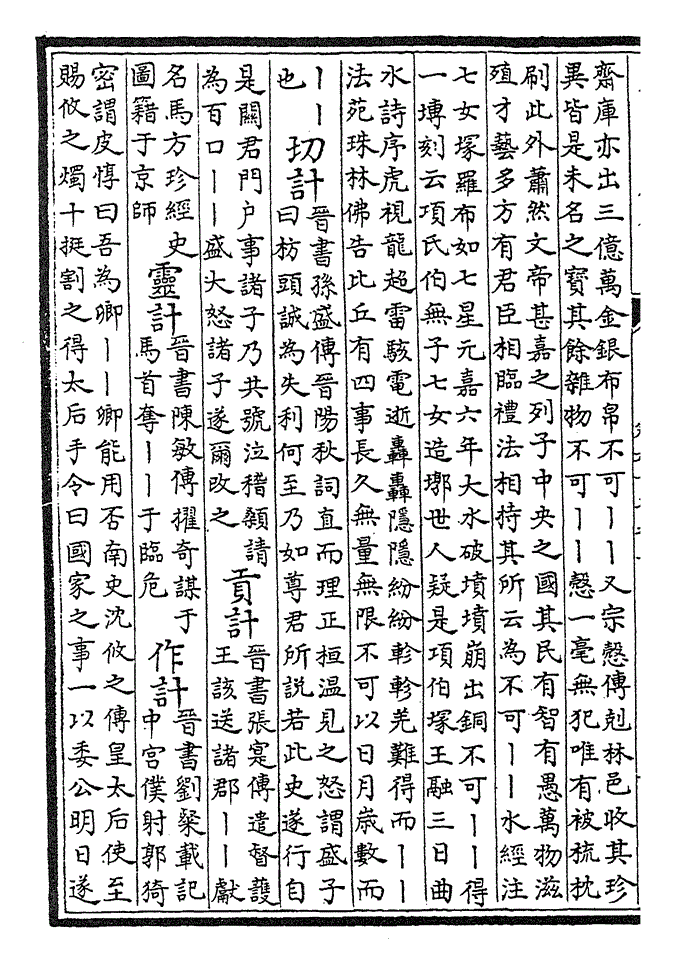 齋庫亦出三億萬金銀布帛不可丨丨又宗慤傳剋林邑收其珍
異皆是未名之寶其餘雜物不可丨丨慤一毫無犯唯有被梳枕
刷此外蕭然文帝甚嘉之列子中央之國其民有智有愚萬物滋
殖才藝多方有君臣相臨禮法相持其所云為不可丨丨水經注
七女塚羅布如七星元嘉六年大水破墳墳崩出銅不可丨丨得
一塼刻云項氏伯無子七女造墎世人疑是項伯塚王融三日曲
水詩序虎視龍超雷駭電逝轟轟隱隱紛紛軫軫羌難得而丨丨
法苑珠林佛告比丘有四事長久無量無限不可以日月嵗數而
丨丨
也
切計
晉書孫盛傳晉陽秋詞直而理正桓温見之怒謂盛子
曰枋頭誠為失利何至乃如尊君所說若此史遂行自
是關君門户事諸子乃共號泣稽顙請
為百口丨丨盛大怒諸子遂爾改之
貢計
晉書張寔傳遣督護
王該送諸郡丨丨獻
名馬方珍經史
圖籍于京師
靈計
晉書陳敏傳擢奇謀于
馬首奪丨丨于臨危
作計
晉書劉粲載記
中宫僕射郭猗
密謂皮惇曰吾為卿丨丨卿能用否南史沈攸之傳皇太后使至
賜攸之燭十挺割之得太后手令曰國家之事一以委公明日遂